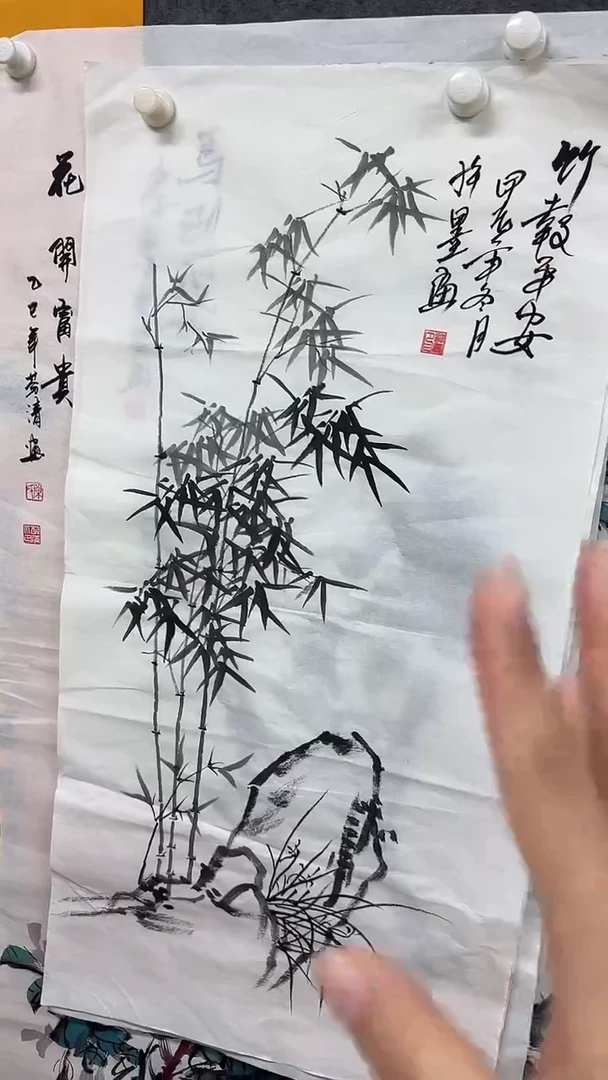 竹報平安
甲辰年冬月
墨画
花開富貴
乙巳年清画